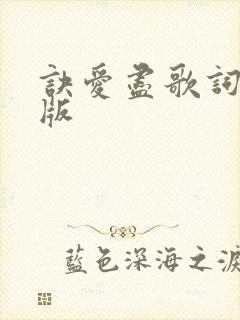 訣愛盡歌詞
版
藍色深海之淚